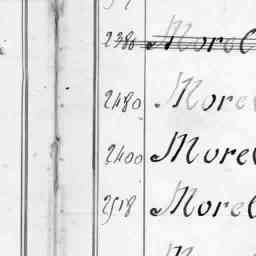 2380 More
2480 More
2400 More
2518 More